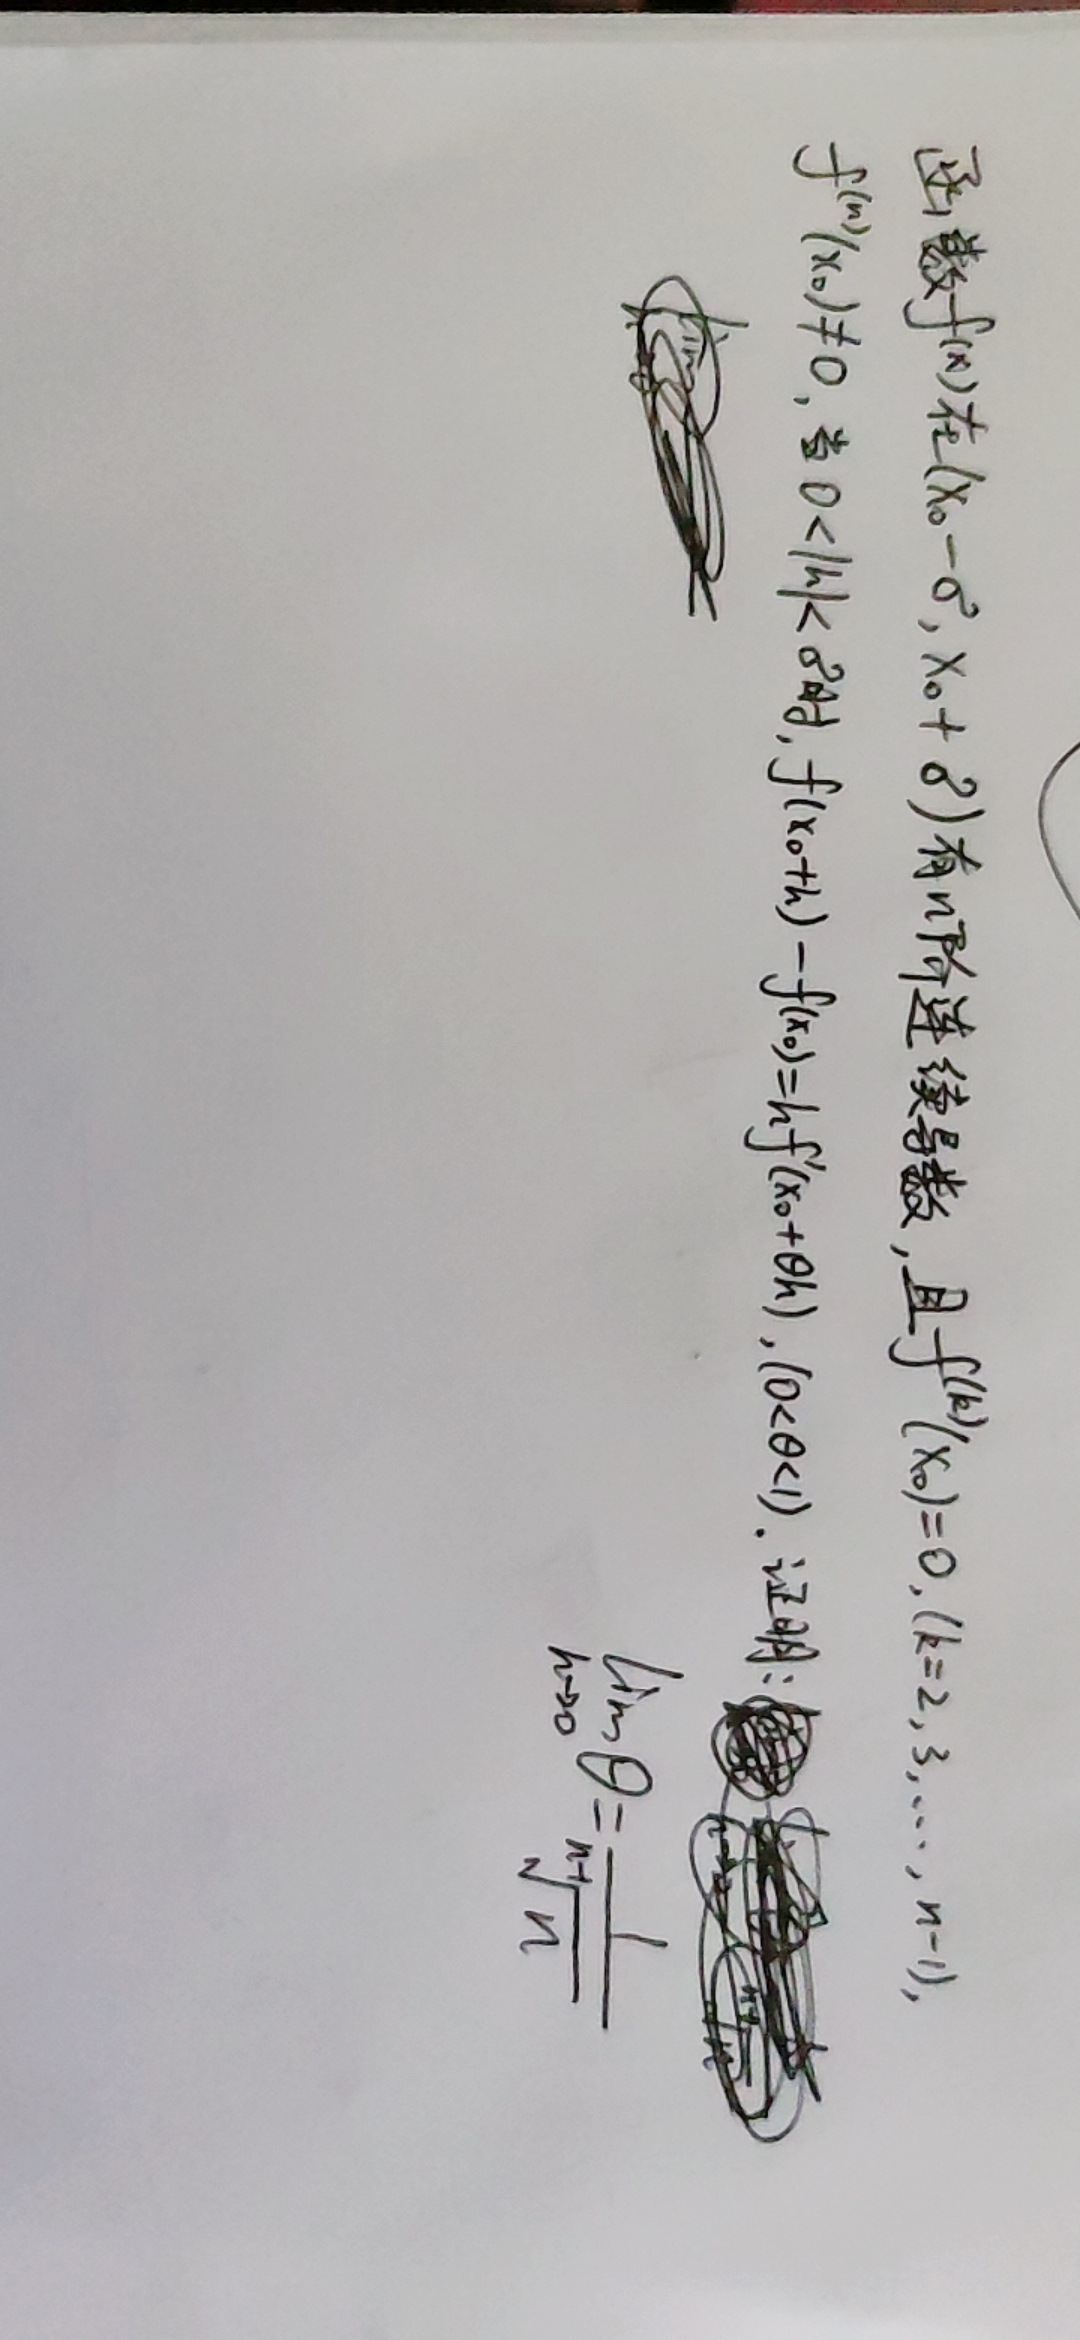 函数f(x)在(x₀-δ, x₀+δ)有n阶连续导数,且f⁽ᵏ⁾(x₀)=0,(k=2,3,…,n-1),
f⁽ⁿ⁾(x₀)≠0,当0<|h|<δ时, f(x₀+h)-f(x₀)=hf'(x₀+θh),(0<θ<1). 证明:
lim_{h→0} θ = 1/ⁿ⁻¹√n